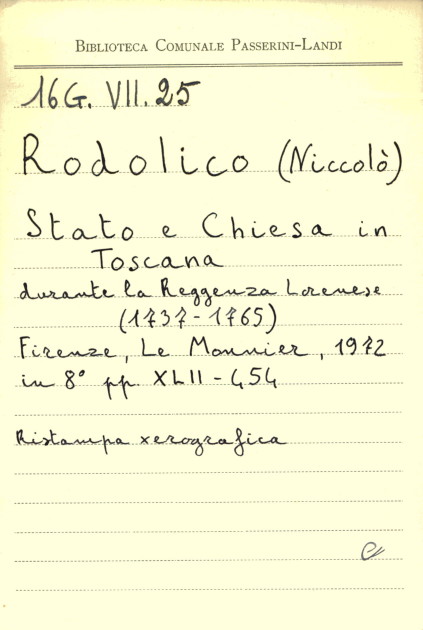 BIBLIOTECA COMUNALE PASSERINI-LANDI
16G. VII. 25
Rodolico (Niccolò)
Stato e Chiesa in
Toscana
durante la Reggenza Lorenese
(1737-1765)
Firenze, Le Monnier, 1972
in 8° pp. XLII-454
Ristampa xerografica